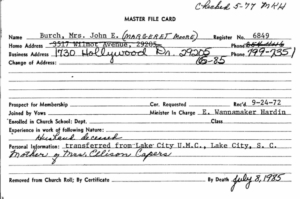 Checked 5-77 MKH
MASTER FILE CARD
Name Burch, Mrs. John E. (MARGARET MOORE) Register No. 6849
Home Address 3517 Wilmot Avenue, 29205 Phone
Business Address 1730 Hollywood Dr. 29205 Phone 799-7351
Change of Address: 10-85
Prospect for Membership Cor. Requested Rec'd 9-24-72
Joined by Vows Minister in Charge E. Wannamaker Hardin
Enrolled in Church School: Dept. Class
Experience in work of following Nature:
Husband deceased
Personal Information: transferred from Lake City U.M.C., Lake City, S. C.
Mother of Mrs. Ellison Capers
Removed from Church Roll; By Certificate By Death July 8, 1985